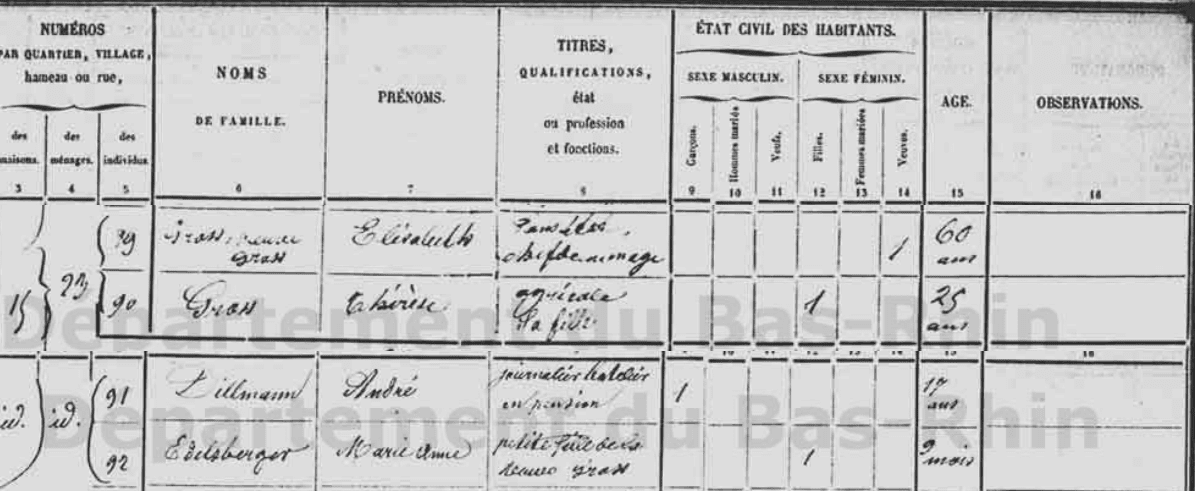 NUMÉROS
PAR QUARTIER, VILLAGE,
hameau ou rue,
des maisons.
des ménages.
des individus
NOMS
DE FAMILLE.
PRÉNOMS.
TITRES,
QUALIFICATIONS,
état
ou profession
et fonctions.
ÉTAT CIVIL DES HABITANTS.
SEXE MASCULIN.
SEXE FÉMININ.
Garçons.
Hommes mariés
Veufs.
Filles.
Femmes mariées
Veuves.
AGE.
OBSERVATIONS.
3 4 5 6 7 8 9 10 11 12 13 14 15 16
89 Elisabeth Sans état, 60
Gross chef de ménage 1 ans
15 23 90 Gross Thérèse 1 25
Sa fille ans
10 11 12 13 14 15 16
id. id. 91 Dillmann André journalier 1 17
en pension ans
92 Edelsberger Marie Anne petite fille de la 1 9
Gross mois
Département du Bas-Rhin
Département du Bas-Rhin